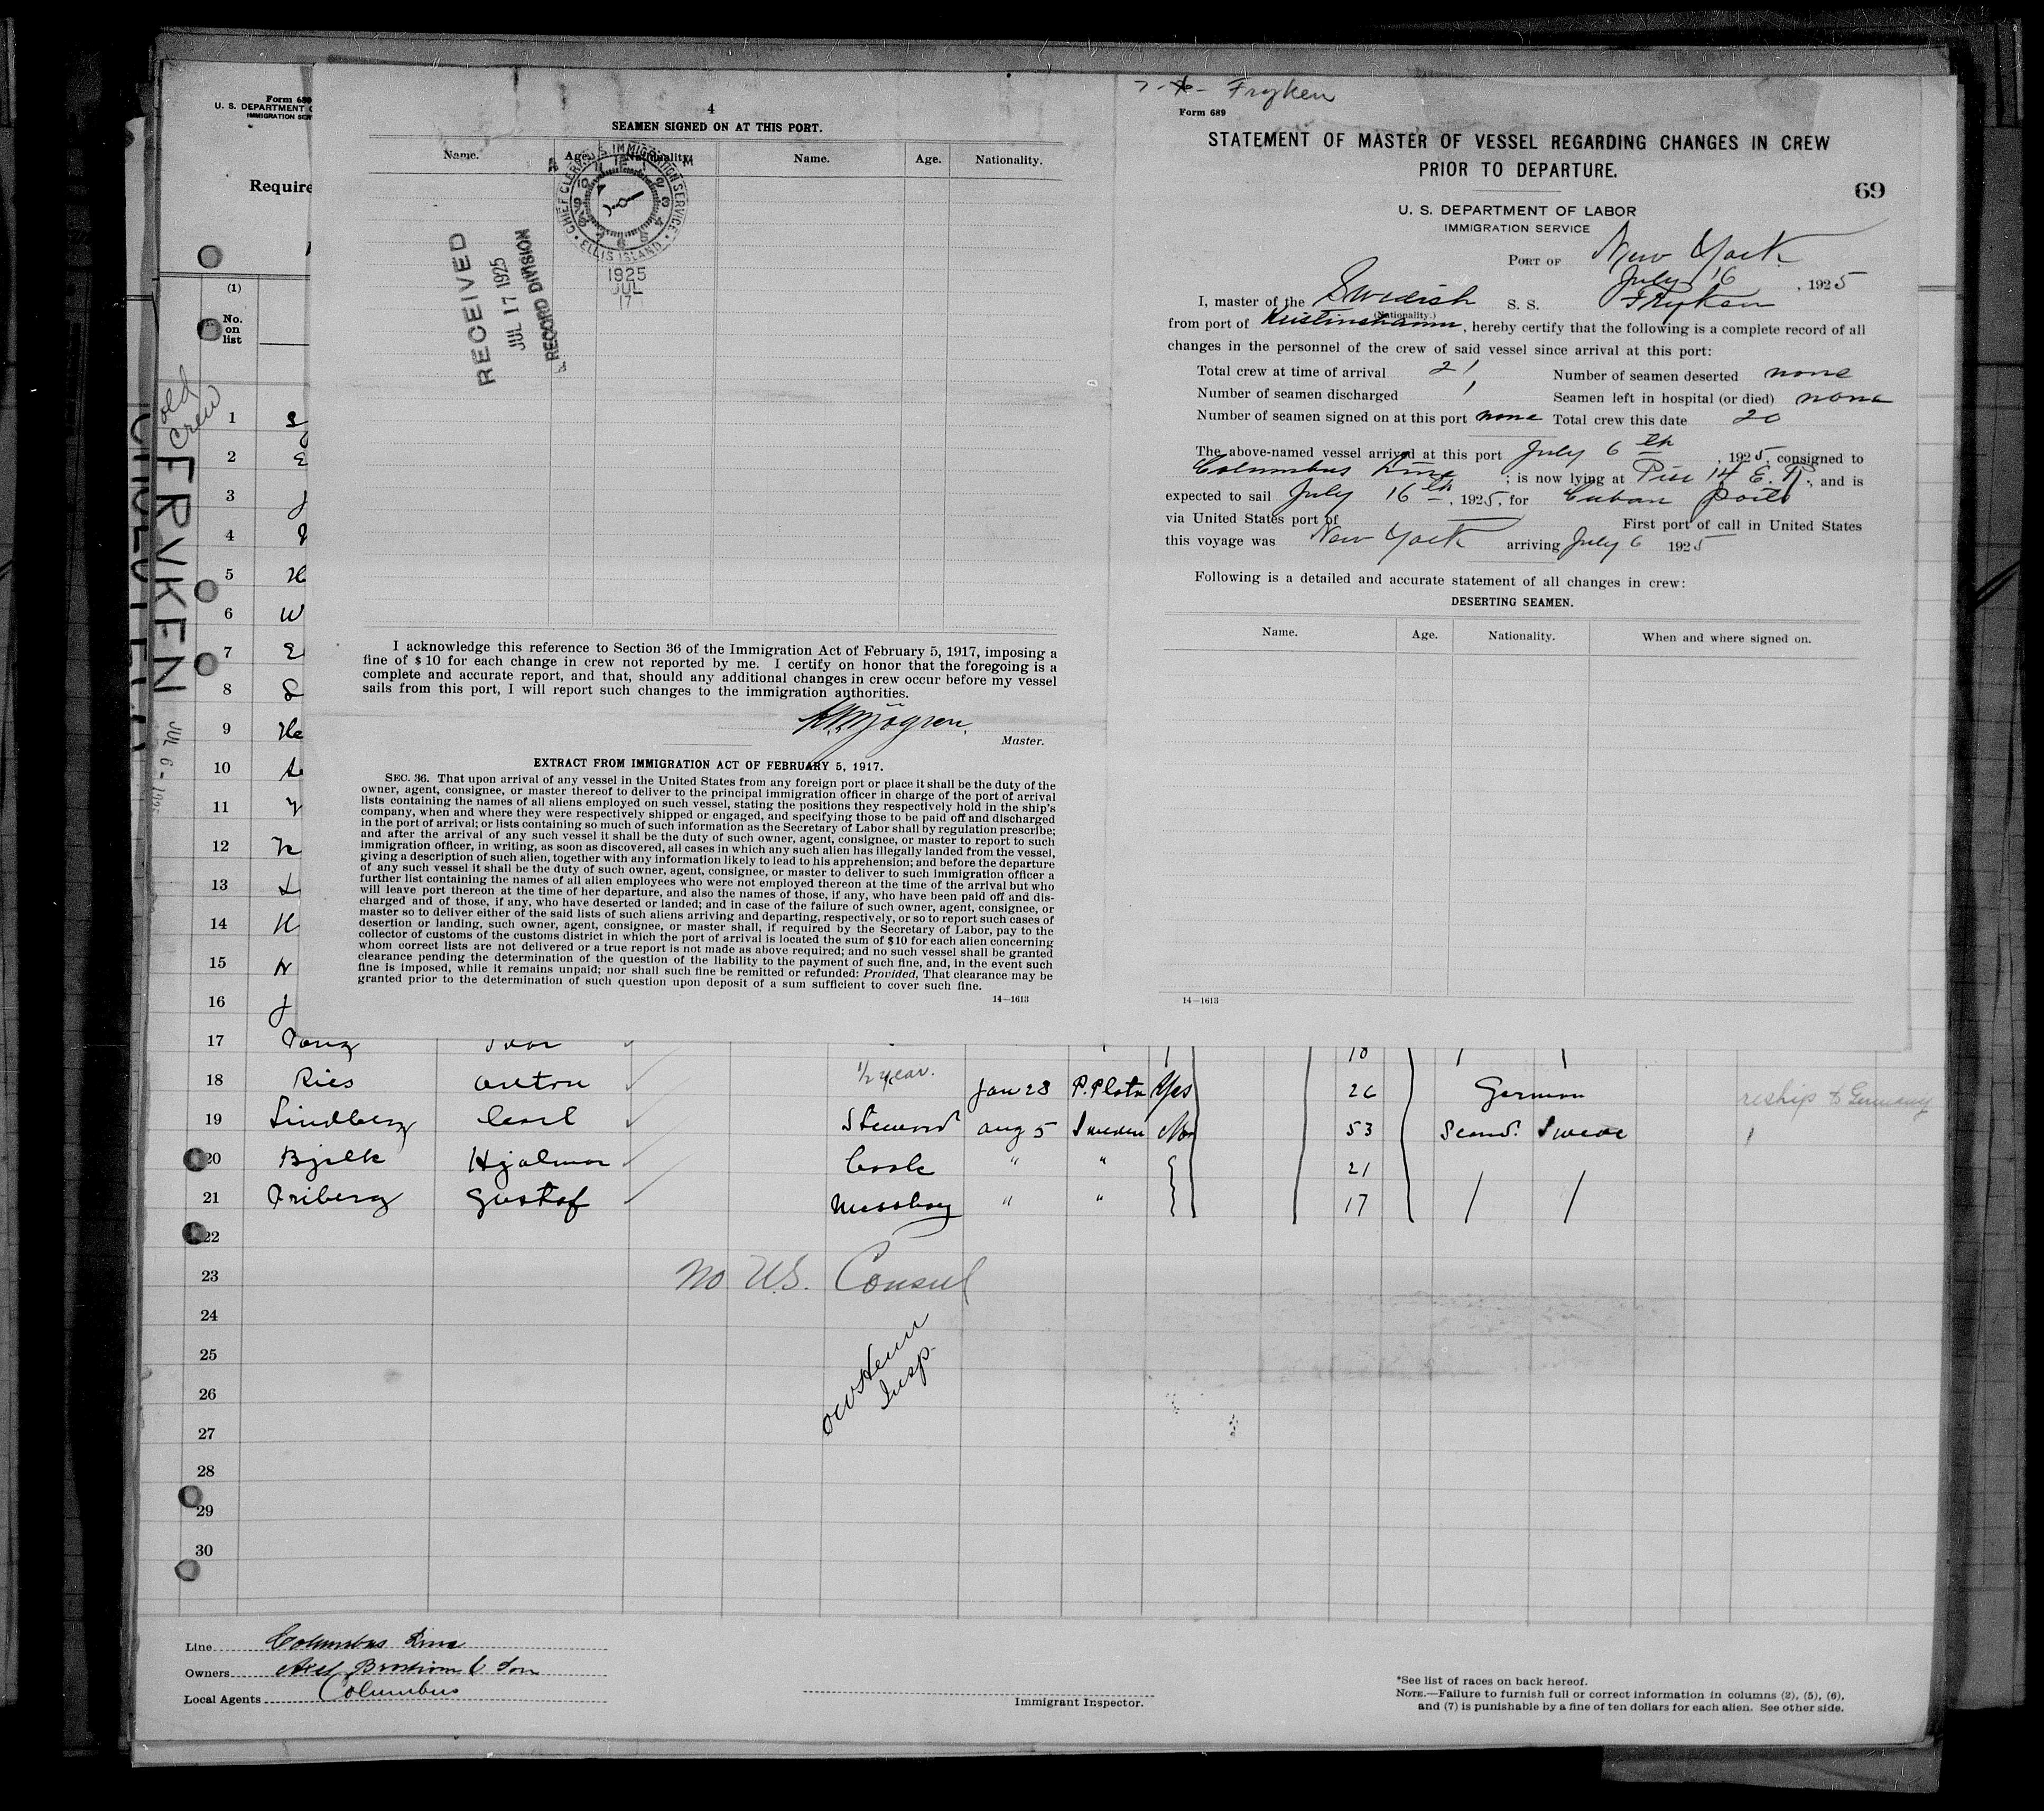 Form 689
U. S. DEPARTMENT O
IMMIGRATION SER
Require
(1)
No.
on
list
old
Crew
FRYKEN
JUL 6 - 1925
1
2
3
4
5
6
7
8
9
10
11
12
13
14
15
16
4
SEAMEN SIGNED ON AT THIS PORT.
Name. Age. Nationality. Name. Age. Nationality.
CHIEF CLERK U. S. IMMIGRATION SERVICE
ELLIS ISLAND
1925
JUL
17
RECEIVED
JUL 17 1925
RECORD DIVISION
I acknowledge this reference to Section 36 of the Immigration Act of February 5, 1917, imposing a
fine of $10 for each change in crew not reported by me. I certify on honor that the foregoing is a
complete and accurate report, and that, should any additional changes in crew occur before my vessel
sails from this port, I will report such changes to the immigration authorities.
Master.
EXTRACT FROM IMMIGRATION ACT OF FEBRUARY 5, 1917.
SEC. 36. That upon arrival of any vessel in the United States from any foreign port or place it shall be the duty of the
owner, agent, consignee, or master thereof to deliver to the principal immigration officer in charge of the port of arrival
lists containing the names of all aliens employed on such vessel, stating the positions they respectively hold in the ship's
company, when and where they were respectively shipped or engaged, and specifying those to be paid off and discharged
in the port of arrival; or lists containing so much of such information as the Secretary of Labor shall by regulation prescribe;
and after the arrival of any such vessel it shall be the duty of such owner, agent, consignee, or master to report to such
immigration officer, in writing, as soon as discovered, all cases in which any such alien has illegally landed from the vessel,
giving a description of such alien, together with any information likely to lead to his apprehension; and before the departure
of any such vessel it shall be the duty of such owner, agent, consignee, or master to deliver to such immigration officer a
further list containing the names of all alien employees who were not employed thereon at the time of the arrival but who
will leave port thereon at the time of her departure, and also the names of those, if any, who have been paid off and dis-
charged and of those, if any, who have deserted or landed; and in case of the failure of such owner, agent, consignee, or
master so to deliver either of the said lists of such aliens arriving and departing, respectively, or so to report such cases of
desertion or landing, such owner, agent, consignee, or master shall, if required by the Secretary of Labor, pay to the
collector of customs of the customs district in which the port of arrival is located the sum of $10 for each alien concerning
whom correct lists are not delivered or a true report is not made as above required; and no such vessel shall be granted
clearance pending the determination of the question of the liability to the payment of such fine, and, in the event such
fine is imposed, while it remains unpaid; nor shall such fine be remitted or refunded: Provided, That clearance may be
granted prior to the determination of such question upon deposit of a sum sufficient to cover such fine.
14—1613
Fryken
Form 689
STATEMENT OF MASTER OF VESSEL REGARDING CHANGES IN CREW
PRIOR TO DEPARTURE.
69
U. S. DEPARTMENT OF LABOR
IMMIGRATION SERVICE
PORT OF New York
July 16, 1925
I, master of the Swedish S. S. Fryken
(Nationality.)
from port of Kristinehamn, hereby certify that the following is a complete record of all
changes in the personnel of the crew of said vessel since arrival at this port:
Total crew at time of arrival 21 Number of seamen deserted none
Number of seamen discharged 1 Seamen left in hospital (or died) none
Number of seamen signed on at this port none Total crew this date 20
The above-named vessel arrived at this port July 6th, 1925, consigned to
Columbus Line; is now lying at Pier 14 E. R., and is
expected to sail July 16th, 1925, for Cuban ports
via United States port of First port of call in United States
this voyage was New York arriving July 6 1925
Following is a detailed and accurate statement of all changes in crew:
DESERTING SEAMEN.
Name. Age. Nationality. When and where signed on.
14—1613
17 Ivar 18
18 Ries Anton 1/2 year. Jan 23 P. Plata Yes 26 German reship to Germany
19 Lindberg Carl Steward Aug 5 Sweden No 53 Scand. Swede
20 Bjelk Hjalmar Cook " " 21
21 Friberg Gustaf Messboy " " 17
22
23 No U.S. Consul
24
25
26
Insp.
27
28
29
30
Line Columbus Line
Owners Axel Brostrom & Son
Local Agents Columbus
Immigrant Inspector.
*See list of races on back hereof.
NOTE.—Failure to furnish full or correct information in columns (2), (5), (6),
and (7) is punishable by a fine of ten dollars for each alien. See other side.